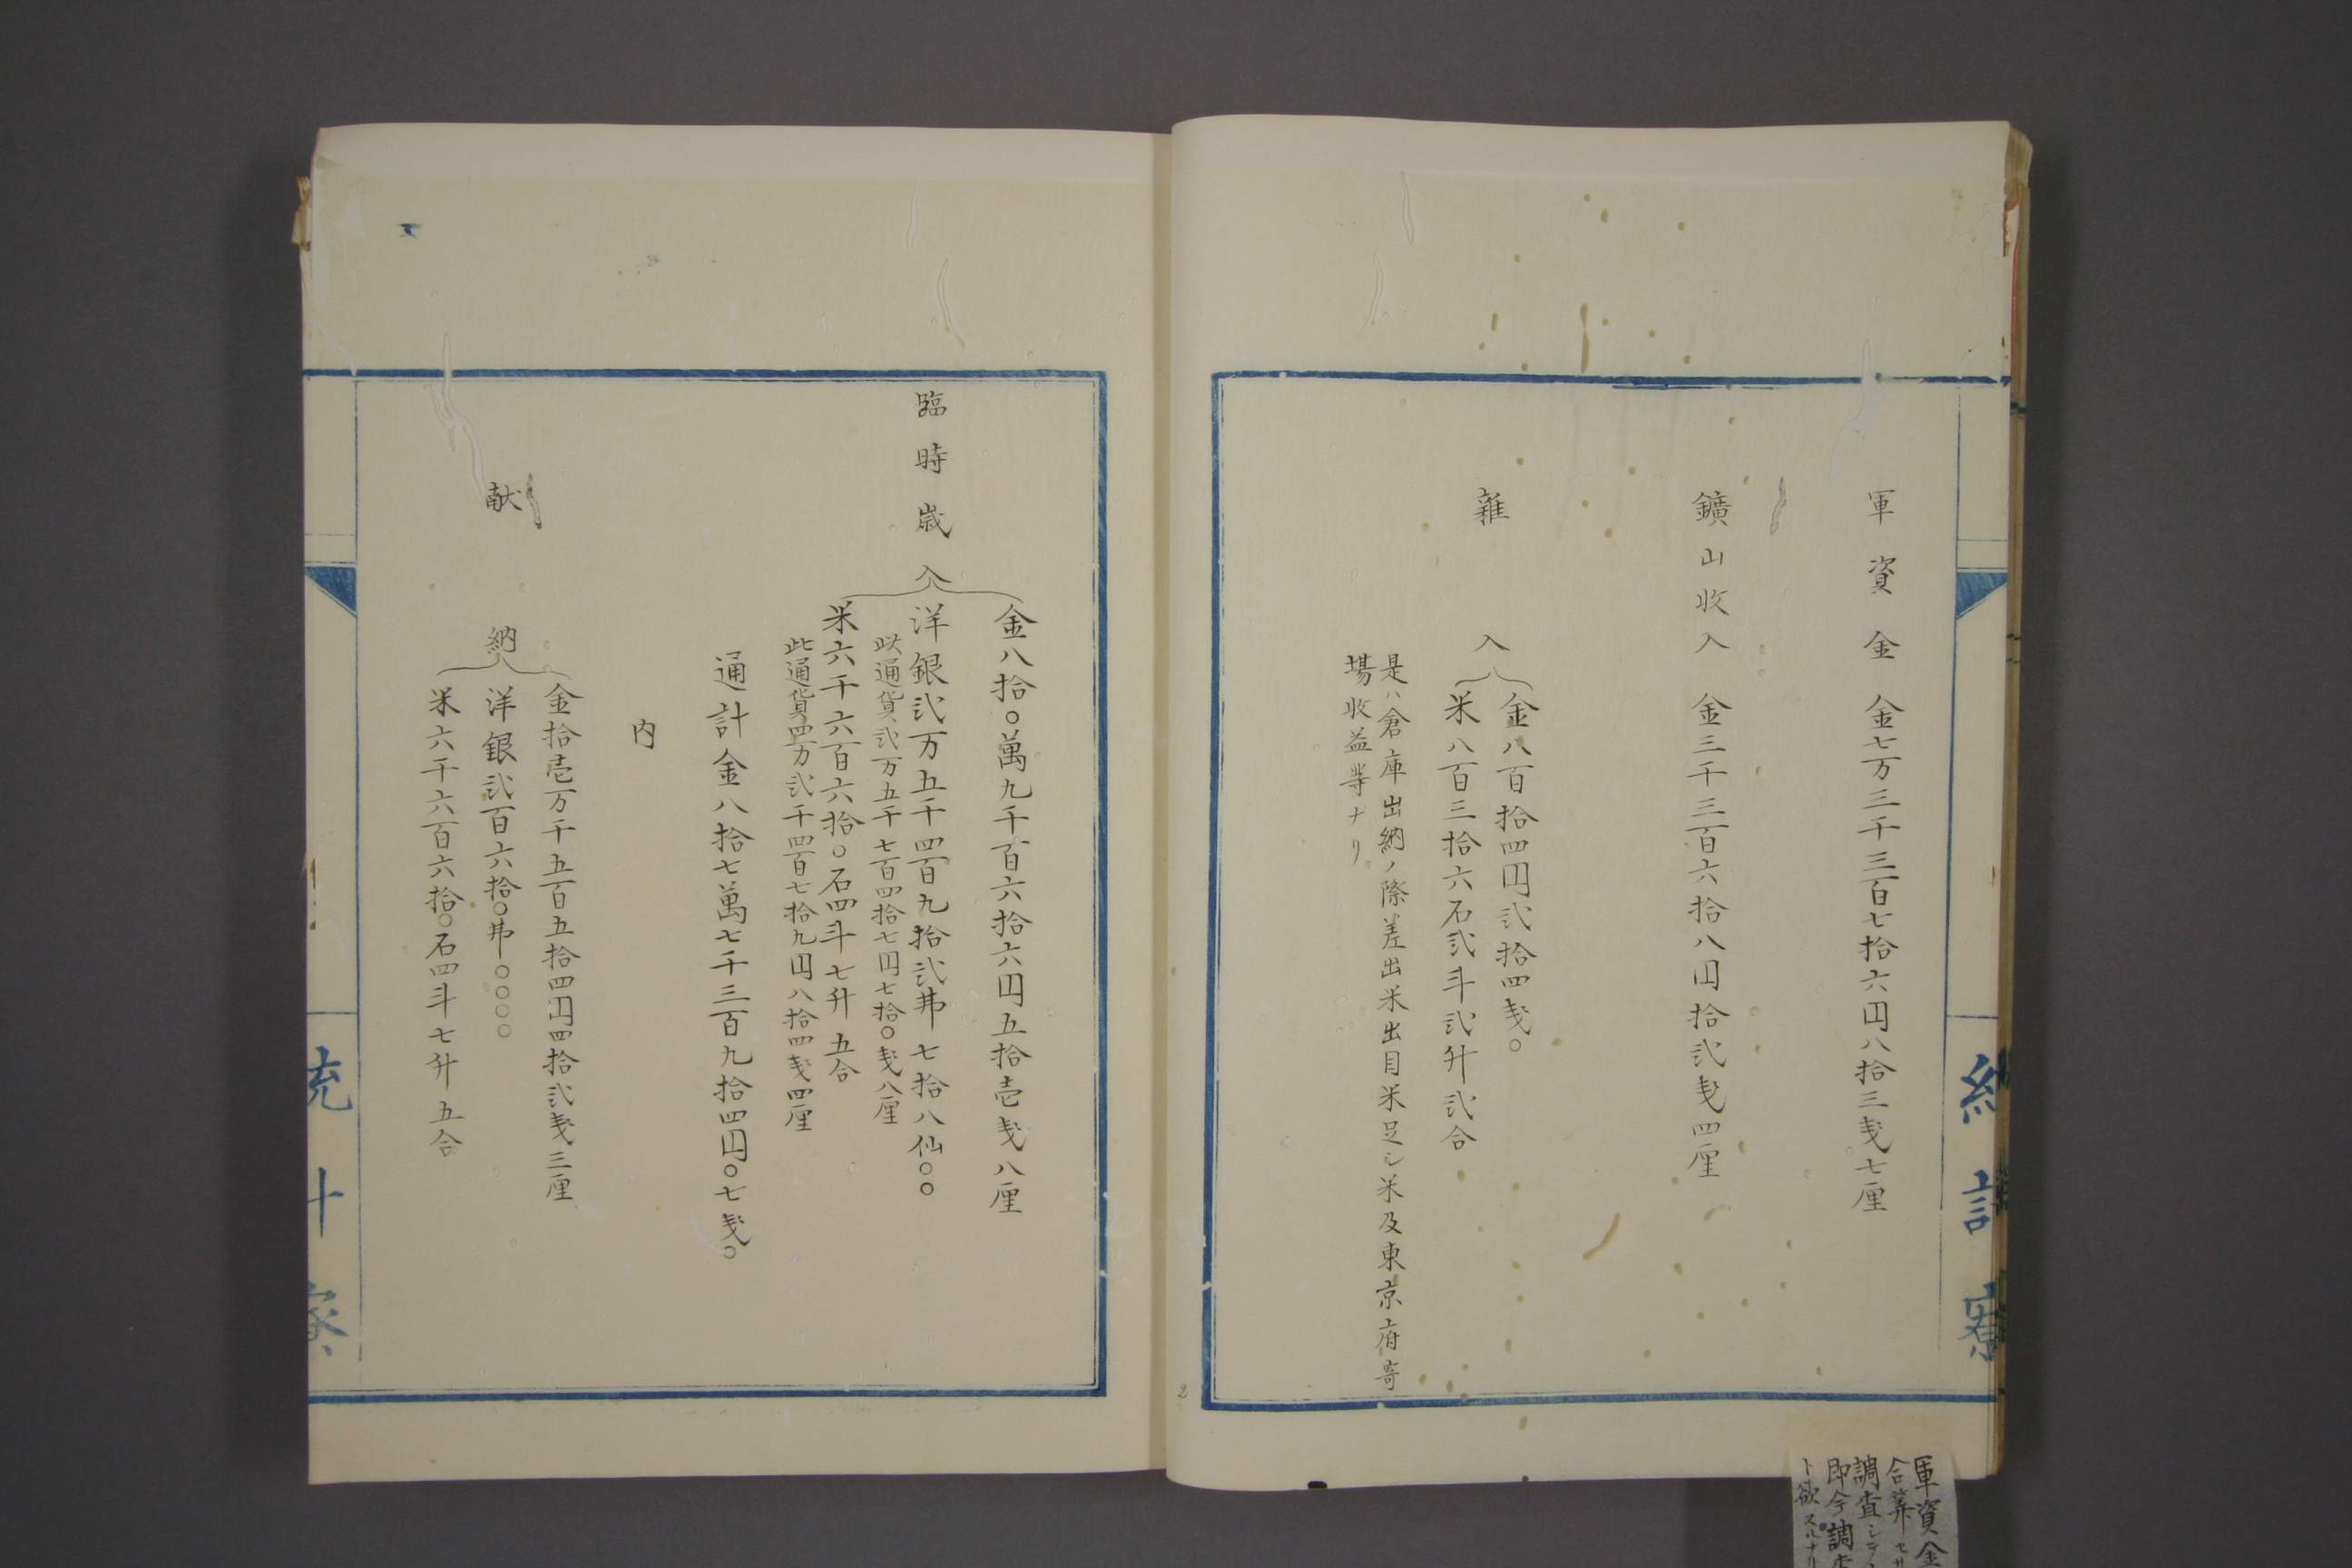 軍資金 金七万三千三百七拾六円八拾三戋七厘
鑛山收入 金三千三百六拾八円拾弐戋四厘
雜入
金八百拾四円弐拾四戋〇
米八百三拾六石弐斗弐升弐合
是ハ倉庫出納ノ際差出米出目米足シ米及東京府寄
場收益等ナリ
臨時歳入
金八拾〇萬九千百六拾六円五拾壱戋八厘
洋銀弐万五千四百九拾弐弗七拾八仙〇〇
此通貨弐万五千七百四拾七円七拾〇戋八厘
米六千六百六拾〇石四斗七升五合
此通貨四万弐千四百七拾九円八拾四戋四厘
通計金八拾七萬七千三百九拾四円〇七戋〇
内
献納
金拾壱万千五百五拾四円四拾弐戋三厘
洋銀弐百六拾〇弗〇〇〇〇
米六千六百六拾〇石四斗七升五合
統計寮
軍資金
合算セサ
調査シテ
即今調査
ト欲スルナリ